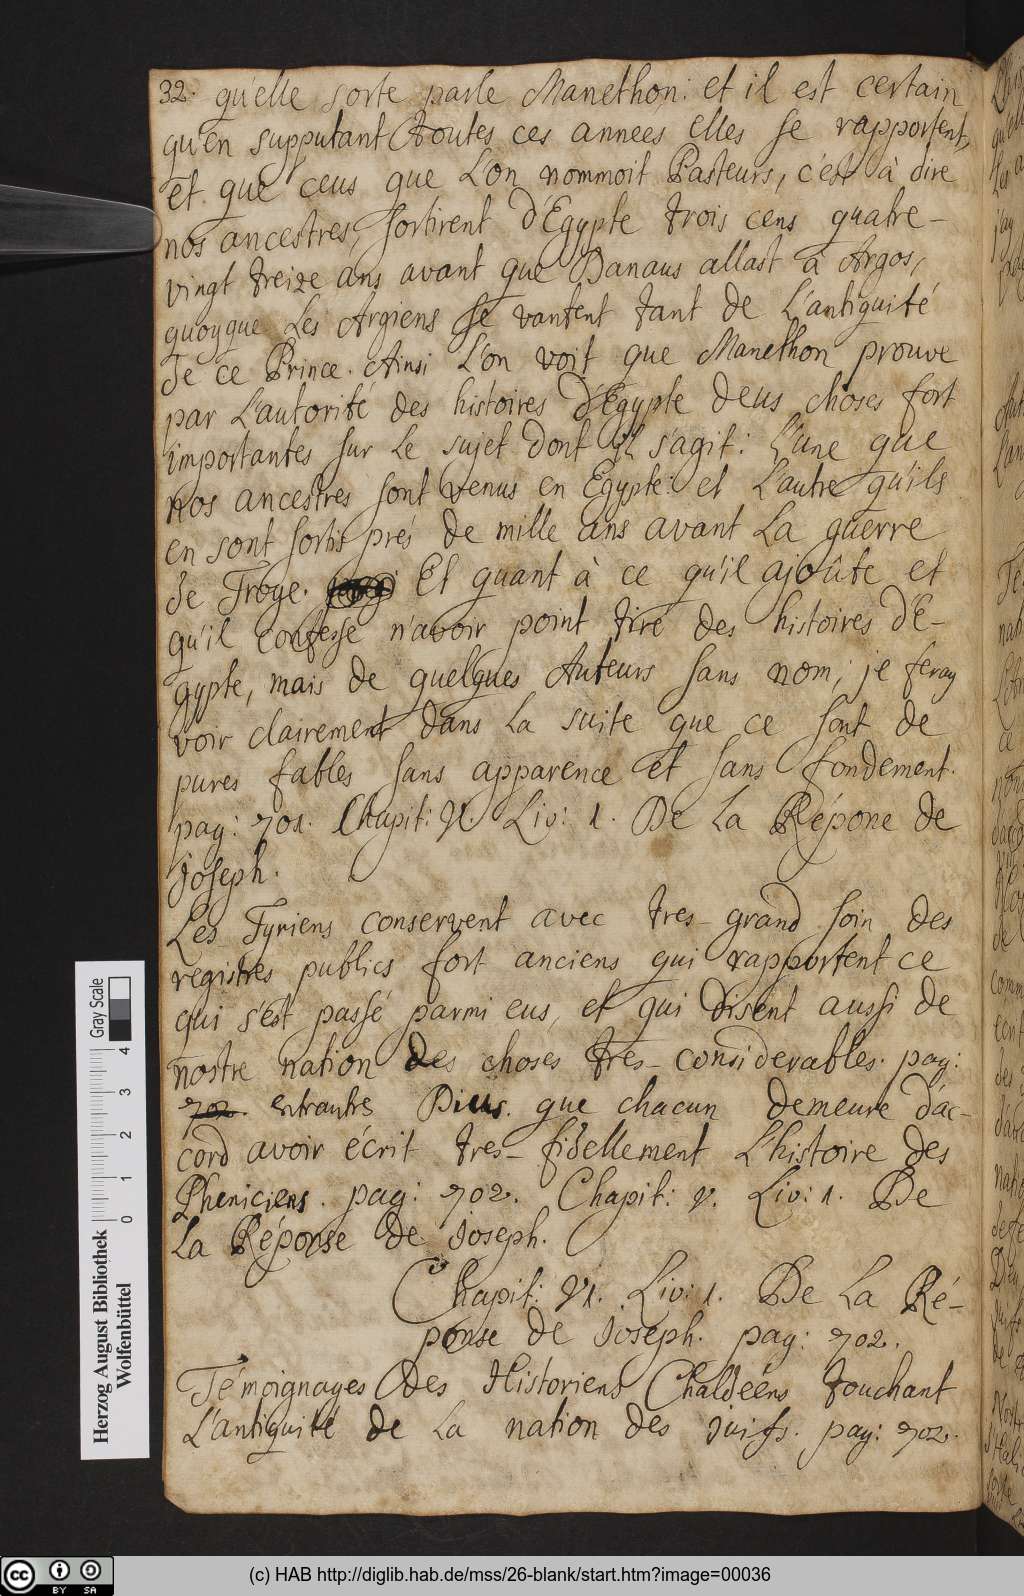 32. qu'elle sorte parle Manethon: et il est certain
qu'en supputant toutes ces annees elles se rapportent,
et que ceus que L'on nommoit Pasteurs, c'est à dire
nos ancestres, sortirent d'Egypte trois cens quatre-
vingt treize ans avant que Danaus allast à Argos,
quoyque Les Argiens se vantent tant de L'antiquité
de ce Prince. Ainsi L'on voit que Manethon prouve
par L'autorité des histoires d'Egypte deus choses fort
importantes sur Le sujet dont il s'agit: L'une que
nos ancestres sont venus en Egypte: et L'autre qu'ils
en sont sortis prés de mille ans avant La guerre
de Troye. Et quant à ce qu'il ajoûte et
qu'il confesse n'avoir point tiré des histoires d'E-
gypte, mais de quelques Auteurs sans nom; je feray
voir clairement dans La suite que ce sont de
pures fables sans apparence et sans fondement.
pag: 701. Chapit: V. Liv: 1. De La Répone de
Joseph.
Les Tyriens conservent avec tres-grand soin des
registres publics fort anciens qui rapportent ce
qui s'est passé parmi eus, et qui disent aussi de
nostre nation des choses tres-considerables. pag:
702. entrautre Dius. que chacun demeure d'ac-
cord avoir écrit tres-fidellement L'histoire des
Pheniciens. pag: 702. Chapit: V. Liv: 1. De
La Réponse de Joseph.
Chapit: VI. Liv: 1. De La Ré-
ponse de Joseph. pag: 702.
Témoignages des Historiens Chaldéens touchant
L'antiquité de La nation des Juifs. pag: 702.
Gray Scale
0 1 2 3 4
Herzog August Bibliothek
Wolfenbüttel
cc BY SA
(c) HAB http://diglib.hab.de/mss/26-blank/start.htm?image=00036